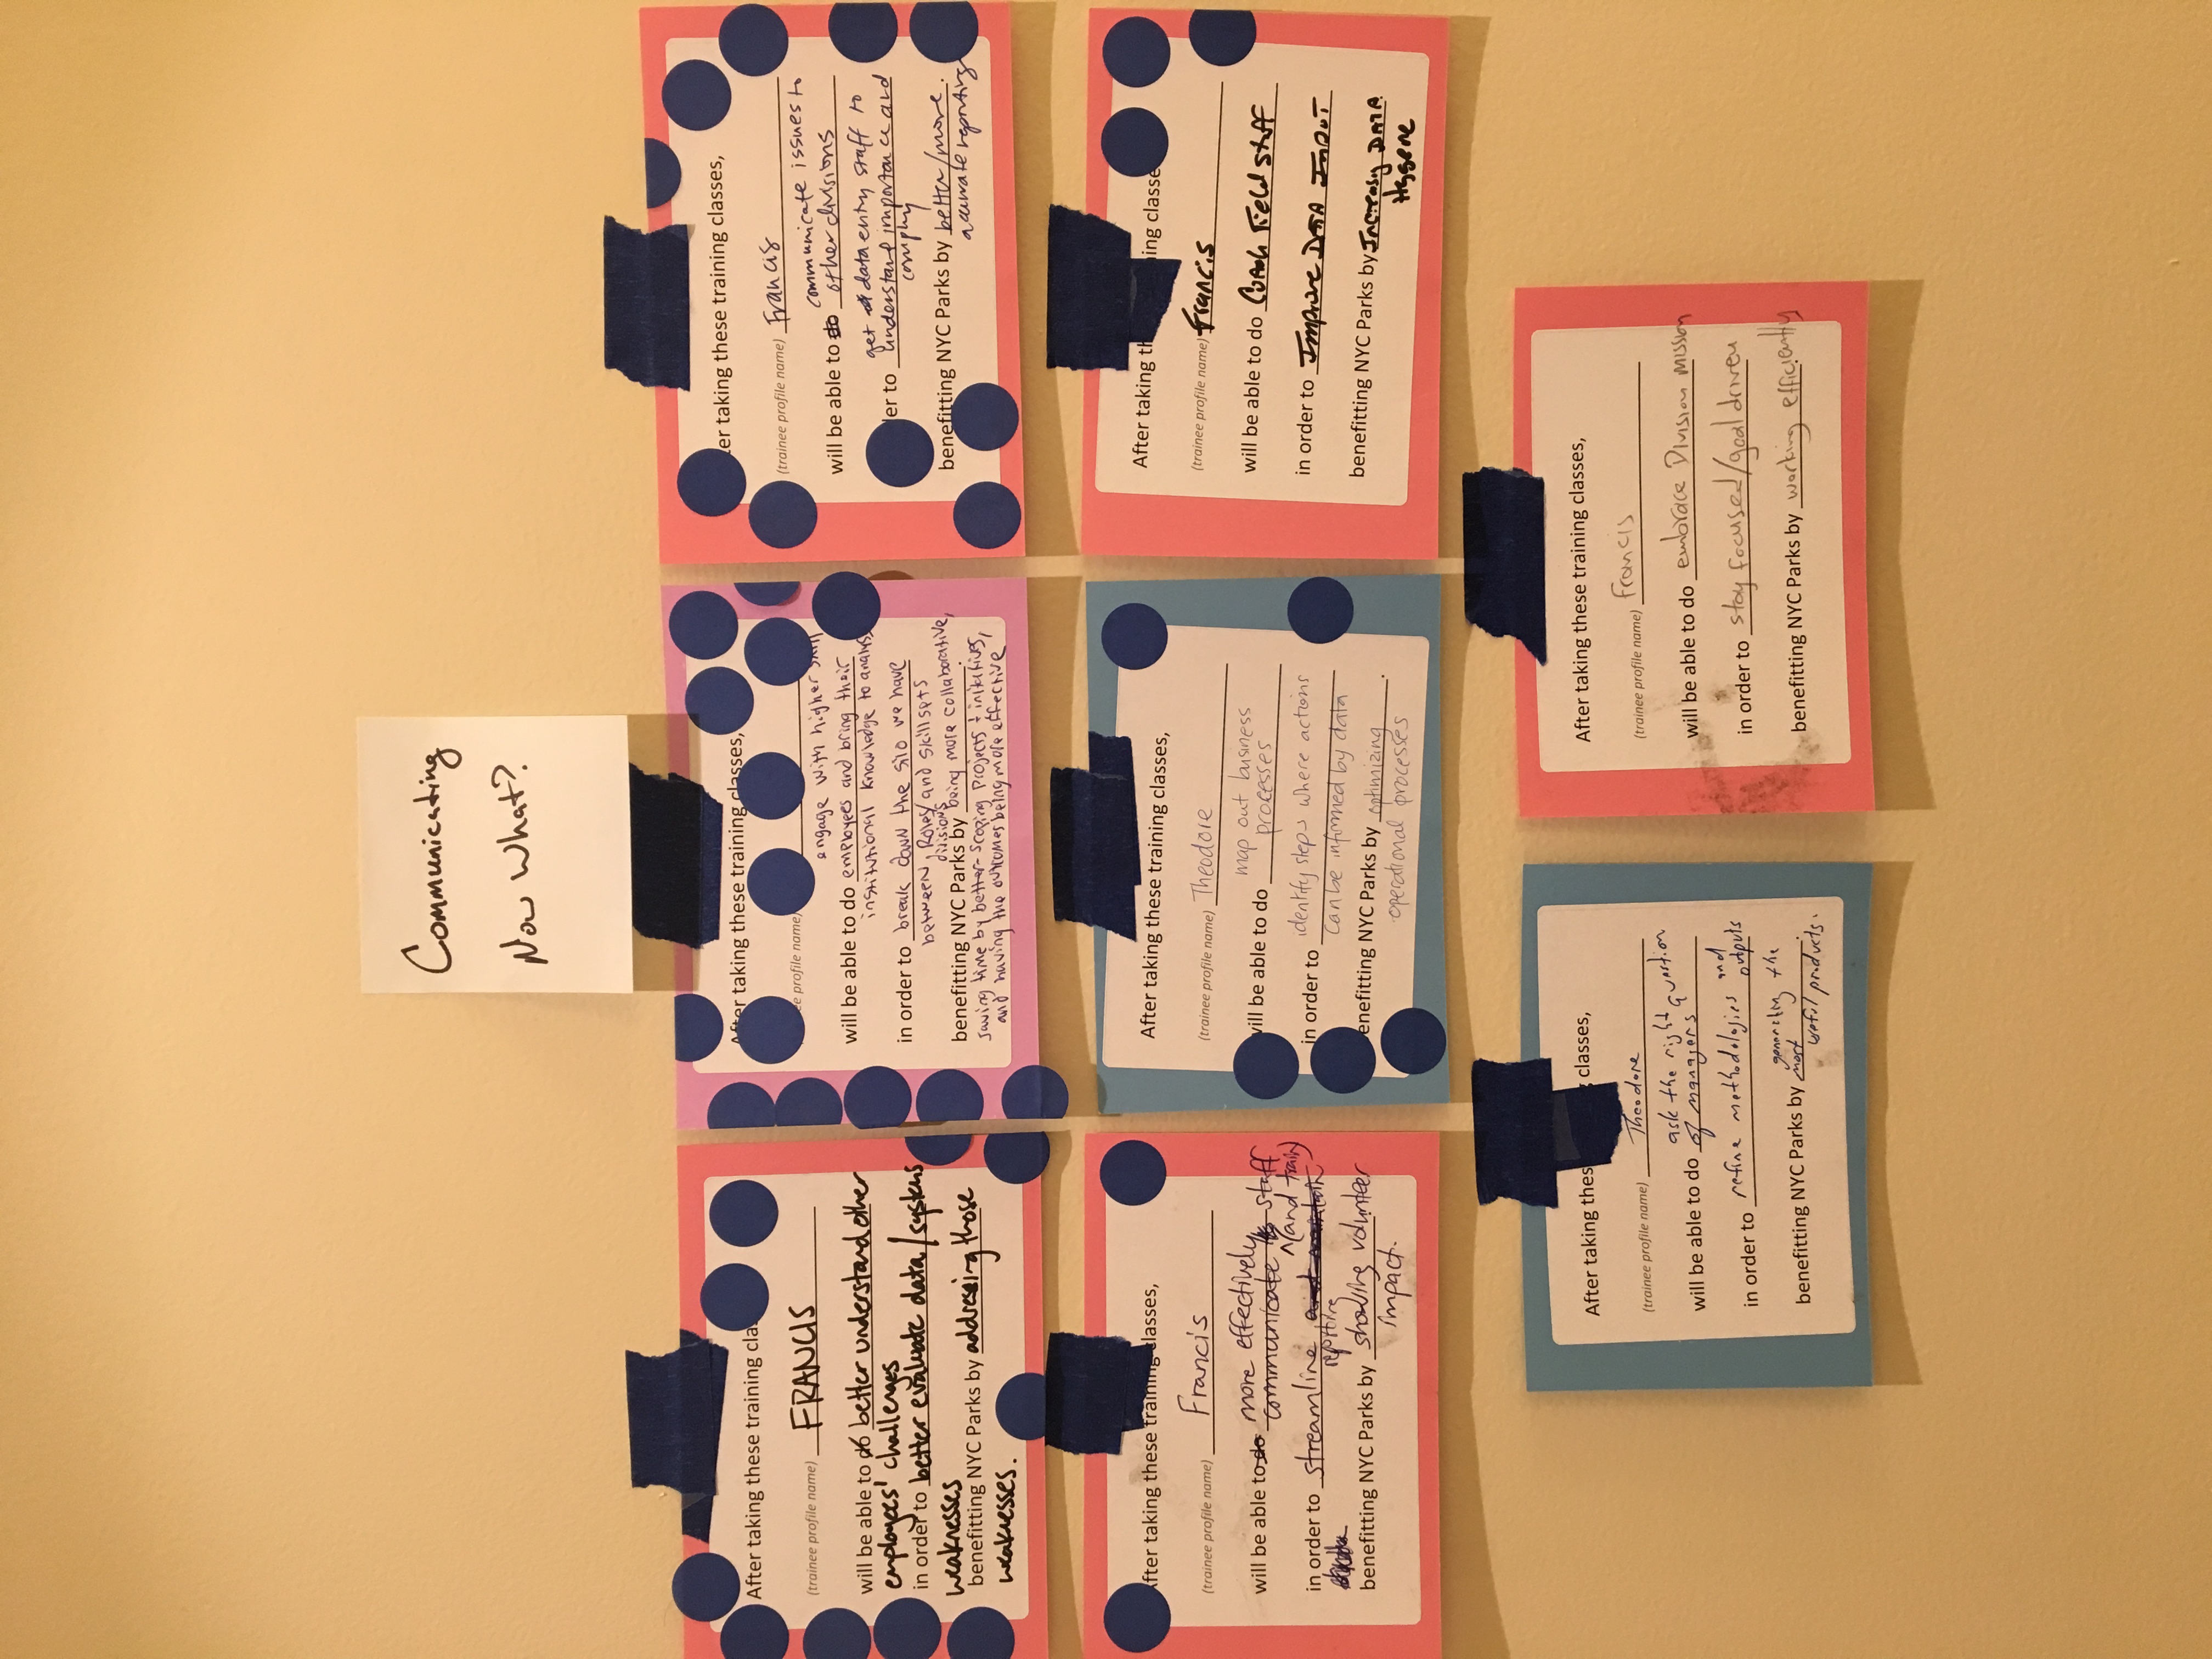 Communicating
Now What?
After taking these training cla
(trainee profile name) FRANCIS
will be able to do better understand other
employees' challenges
in order to better evaluate data/systems
weaknesses
benefitting NYC Parks by addressing those
weaknesses.
After taking these training classes,
ee profile name)
engage with higher skill
will be able to do employees and bring their
institutional knowledge to analysis
in order to break down the silo we have
between, Roles/ and skillsets
divisions
benefitting NYC Parks by being more collaborative,
saving time by better-scoping projects + initiatives,
and having the outcomes being more effective
er taking these training classes,
(trainee profile name) Francis
communicate issues to
will be able to do other divisions
get data entry staff to
er to understand importance and
comply
benefitting NYC Parks by better/more.
accurate reporting
After taking these training classes,
(trainee profile name) Francis
will be able to do more effectively
communicate staff
(and train)
in order to streamline and maintain
reporting
benefitting NYC Parks by showing volunteer
impact.
After taking these training classes,
(trainee profile name) Theodore
map out business
will be able to do processes
in order to identify steps where actions
can be informed by data
benefitting NYC Parks by optimizing.
operational processes
After taking th ing classe
(trainee profile name) Francis
will be able to do Coach Field Staff
in order to Improve DATA INPUT
benefitting NYC Parks by Increasing DATA.
Hygene
After taking thes g classes,
(trainee profile name) Theodore
ask the right question
will be able to do of managers
in order to refine methodologies and
outputs
generating the
benefitting NYC Parks by most.
useful products.
After taking these training classes,
(trainee profile name) Francis
will be able to do embrace Division mission
in order to stay focused/goal driven
benefitting NYC Parks by working efficiently.